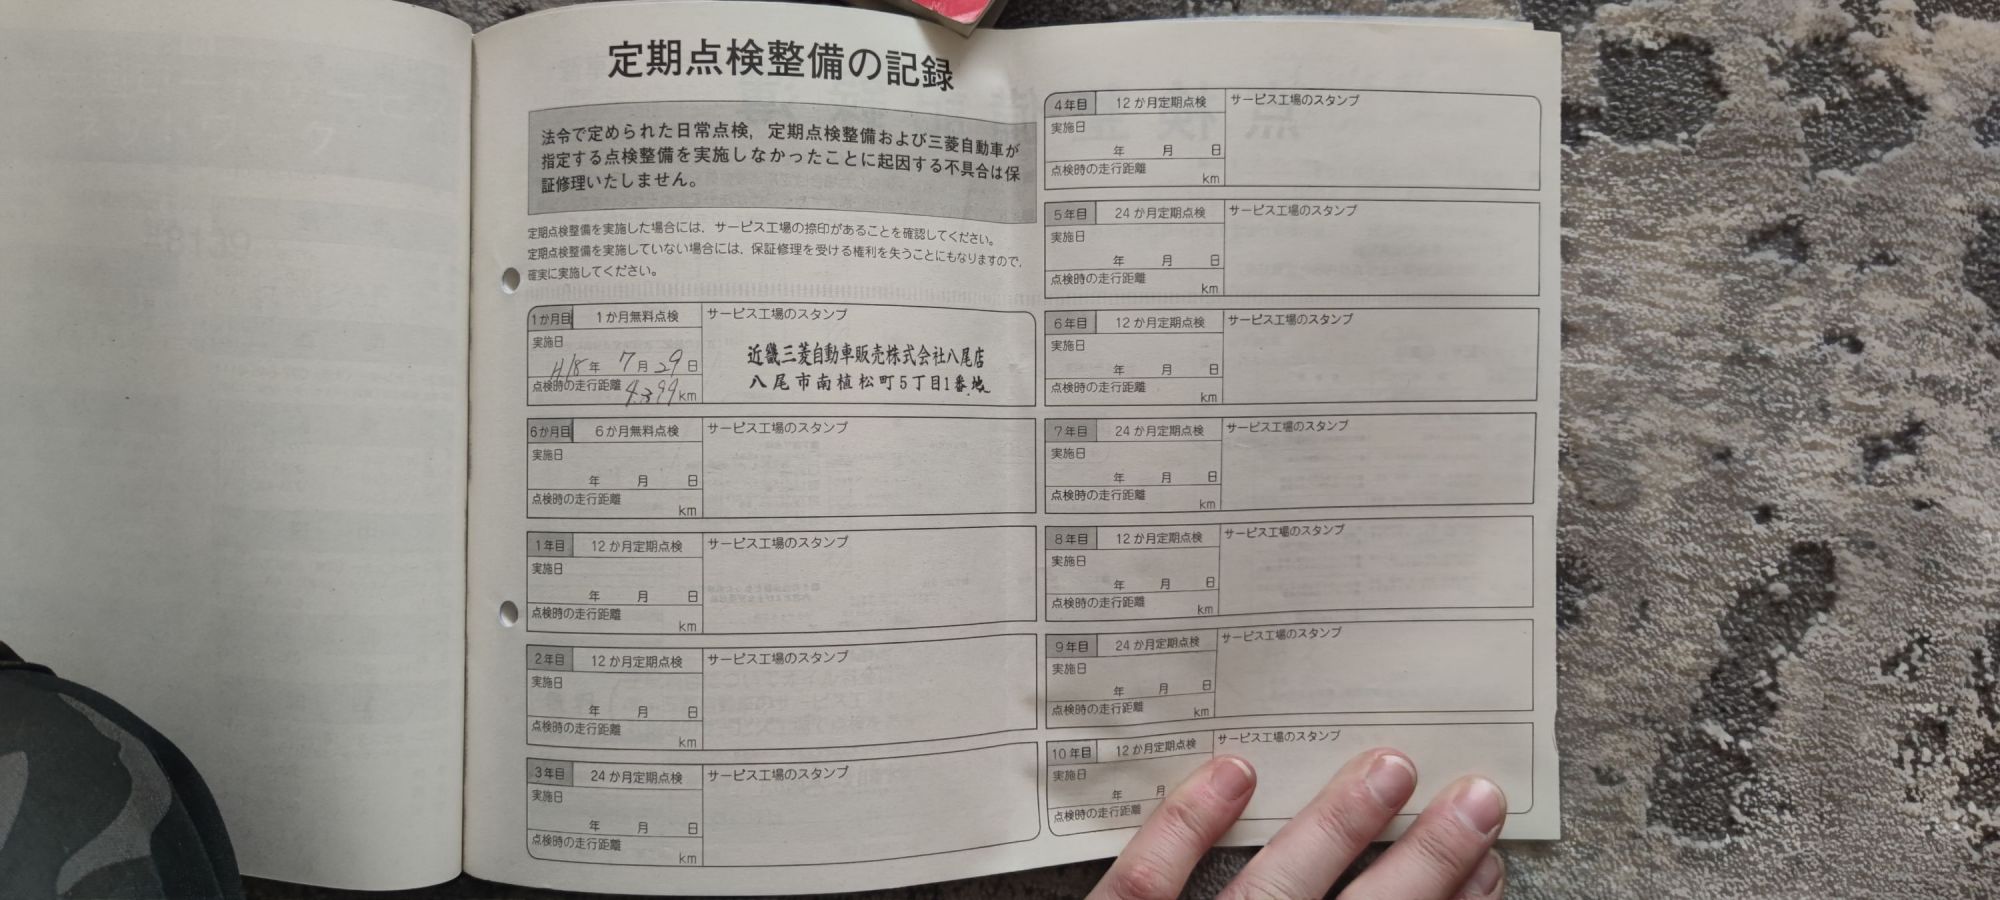 定期点検整備の記録
法令で定められた日常点検，定期点検整備および三菱自動車が
指定する点検整備を実施しなかったことに起因する不具合は保
証修理いたしません。
定期点検整備を実施した場合には，サービス工場の捺印があることを確認してください。
定期点検整備を実施していない場合には，保証修理を受ける権利を失うことにもなりますので，
確実に実施してください。
1か月目 1か月無料点検 サービス工場のスタンプ
実施日
H18年 7月 29日
点検時の走行距離
4,399km
近畿三菱自動車販売株式会社八尾店
八尾市南植松町5丁目1番地
6か月目 6か月無料点検 サービス工場のスタンプ
実施日
年 月 日
点検時の走行距離
km
1年目 12か月定期点検 サービス工場のスタンプ
実施日
年 月 日
点検時の走行距離
km
2年目 12か月定期点検 サービス工場のスタンプ
実施日
年 月 日
点検時の走行距離
km
3年目 24か月定期点検 サービス工場のスタンプ
実施日
年 月 日
点検時の走行距離
km
4年目 12か月定期点検 サービス工場のスタンプ
実施日
年 月 日
点検時の走行距離
km
5年目 24か月定期点検 サービス工場のスタンプ
実施日
年 月 日
点検時の走行距離
km
6年目 12か月定期点検 サービス工場のスタンプ
実施日
年 月 日
点検時の走行距離
km
7年目 24か月定期点検 サービス工場のスタンプ
実施日
年 月 日
点検時の走行距離
km
8年目 12か月定期点検 サービス工場のスタンプ
実施日
年 月 日
点検時の走行距離
km
9年目 24か月定期点検 サービス工場のスタンプ
実施日
年 月 日
点検時の走行距離
km
10年目 12か月定期点検 サービス工場のスタンプ
実施日
年 月
点検時の走行距離